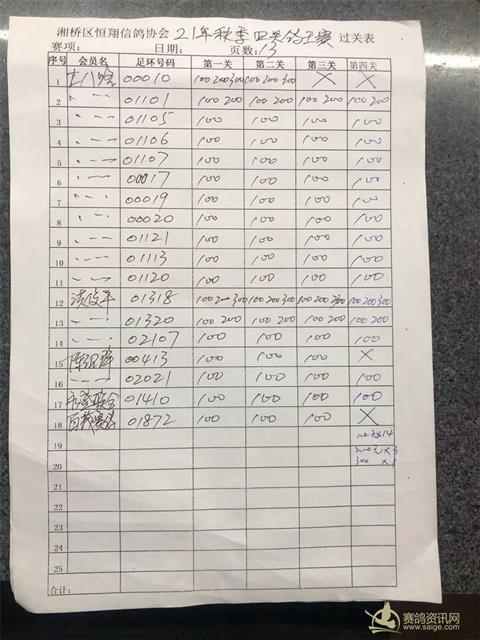 湘桥区恒翔信鸽协会 21年秋季四关鸽王赛 过关表
赛项： 日期： 页数：13
序号 会员名 足环号码 第一关 第二关 第三关 第四关
1 00010 100 200 300 100 200 300 X X
2 01101 100 200 100 200 100 200 100 200
3 01105 100 100 100 100
4 01106 100 100 100 100
5 01107 100 100 100 100
6 00017 100 100 100 100
7 00019 100 100 100 100
8 00020 100 100 100 100
9 01121 100 100 100 100
10 01113 100 100 100 100
11 01120 100 100 100 100
12 01318 100 200 300 100 200 300 100 200 300 100 200 300
13 01320 100 200 100 200 100 200 100 200
14 02107 100 100 100 100
15 00413 100 100 100 X
16 02021 100 100 100 100
17 01410 100 100 100 100
18 01872 100 100 100 X
19 100元x14
20 200元x3
300 x1
21
22
23
24
25
合计：
赛鸽资讯网
www.saige.com